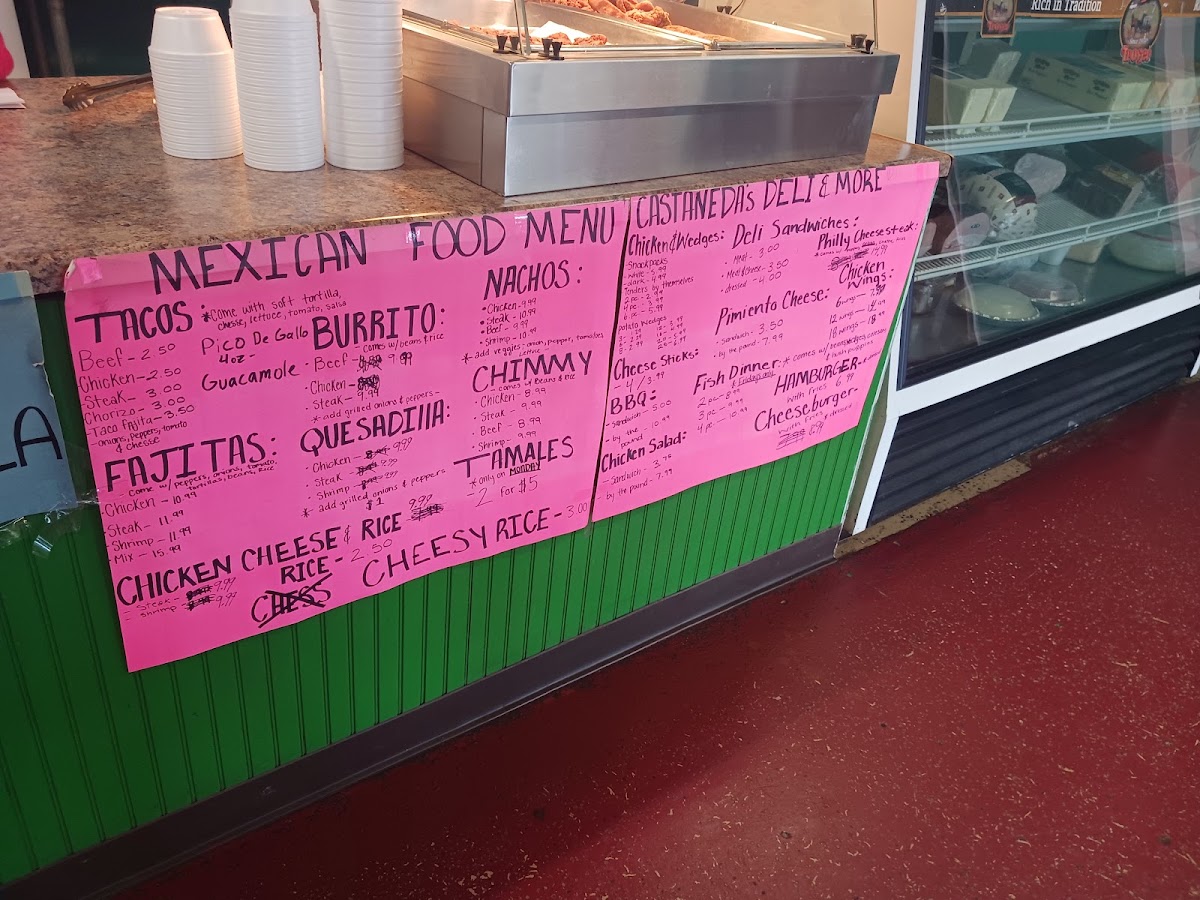 Rich in Tradition
LA
MEXICAN FOOD MENU
TACOS
*Come with soft tortilla,
cheese, lettuce, tomato, salsa
Beef - 2.50
Chicken - 2.50
Steak - 3.00
Chorizo - 3.00
Taco fajita - 3.50
- onions, peppers, tomato
& chesse
Pico De Gallo
4oz -
Guacamole -
FAJITAS:
- Come w/ peppers, onions, tomato,
tortillas, beans, rice
Chicken - 10.99
Steak - 11.99
Shrimp - 11.99
Mix - 15.99
BURRITO:
- comes w/ beans & rice
Beef - 9.99
Chicken -
Steak - 9.99
* add grilled onions & peppers -
QUESADILLA:
Chicken - 9.99
Steak -
Shrimp -
* add grilled onions & peppers
$1
NACHOS:
Chicken - 9.99
Steak - 10.99
Beef - 9.99
Shrimp - 10.99
* add veggies: onion, pepper, tomatoes,
lettuce
CHIMMY
- comes w/ beans & rice
Chicken - 8.99
Steak - 9.99
Beef - 8.99
Shrimp - 9.99
TAMALES
*only on MONDAY
- 2 for $5
CHICKEN CHEESE & RICE 9.99
- Steak - 9.99
- Shrimp 9.99
RICE - 2.50
CHESS
CHEESY RICE - 3.00
CASTANEDA's DELI & MORE
Chicken & Wedges:
Snackpacks
white - 5.99
dark - 4.99
Tenders by themselves
Potato Wedges
Cheese Sticks:
- 4 / 3.99
BBQ:
Sandwich - 5.00
by the
pound - 10.99
Chicken Salad:
- Sandwich - 3.75
by the pound - 7.99
Deli Sandwiches:
Meat - 3.00
Meat & cheese - 3.50
dressed - 4.00
Pimiento Cheese:
- Sandwich - 3.50
- by the pound - 7.99
Fish Dinner:
2 pc - 8.99
3 pc - 9.99
4 pc - 10.99
Philly Cheesesteak:
Chicken
Wings:
6 wings - 7.99
12 wings -
18 wings -
HAMBURGER -
with fries 6.99
Cheeseburger -
with fries
6.99